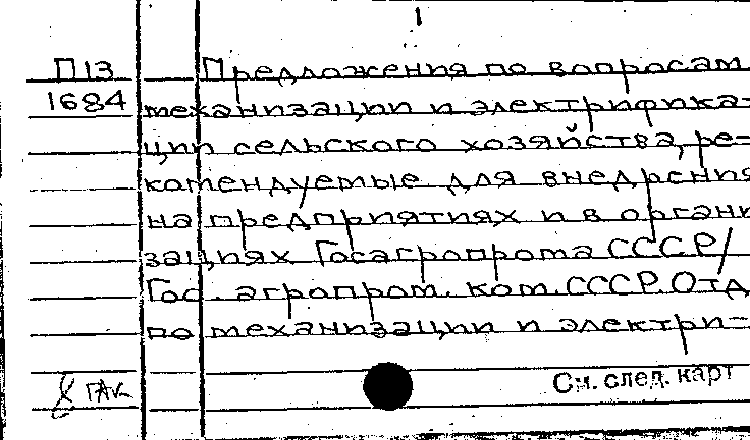 1
П13 Предложения по вопросам
1684 механизации и электрифика-
ции сельского хозяйства, ре-
комендуемые для внедрения
на предприятиях и в органи
зациях Госагропрома СССР/
Гос. агропром. ком. СССР. Отд
по механизации и электри-
См. след. карт
ГАК